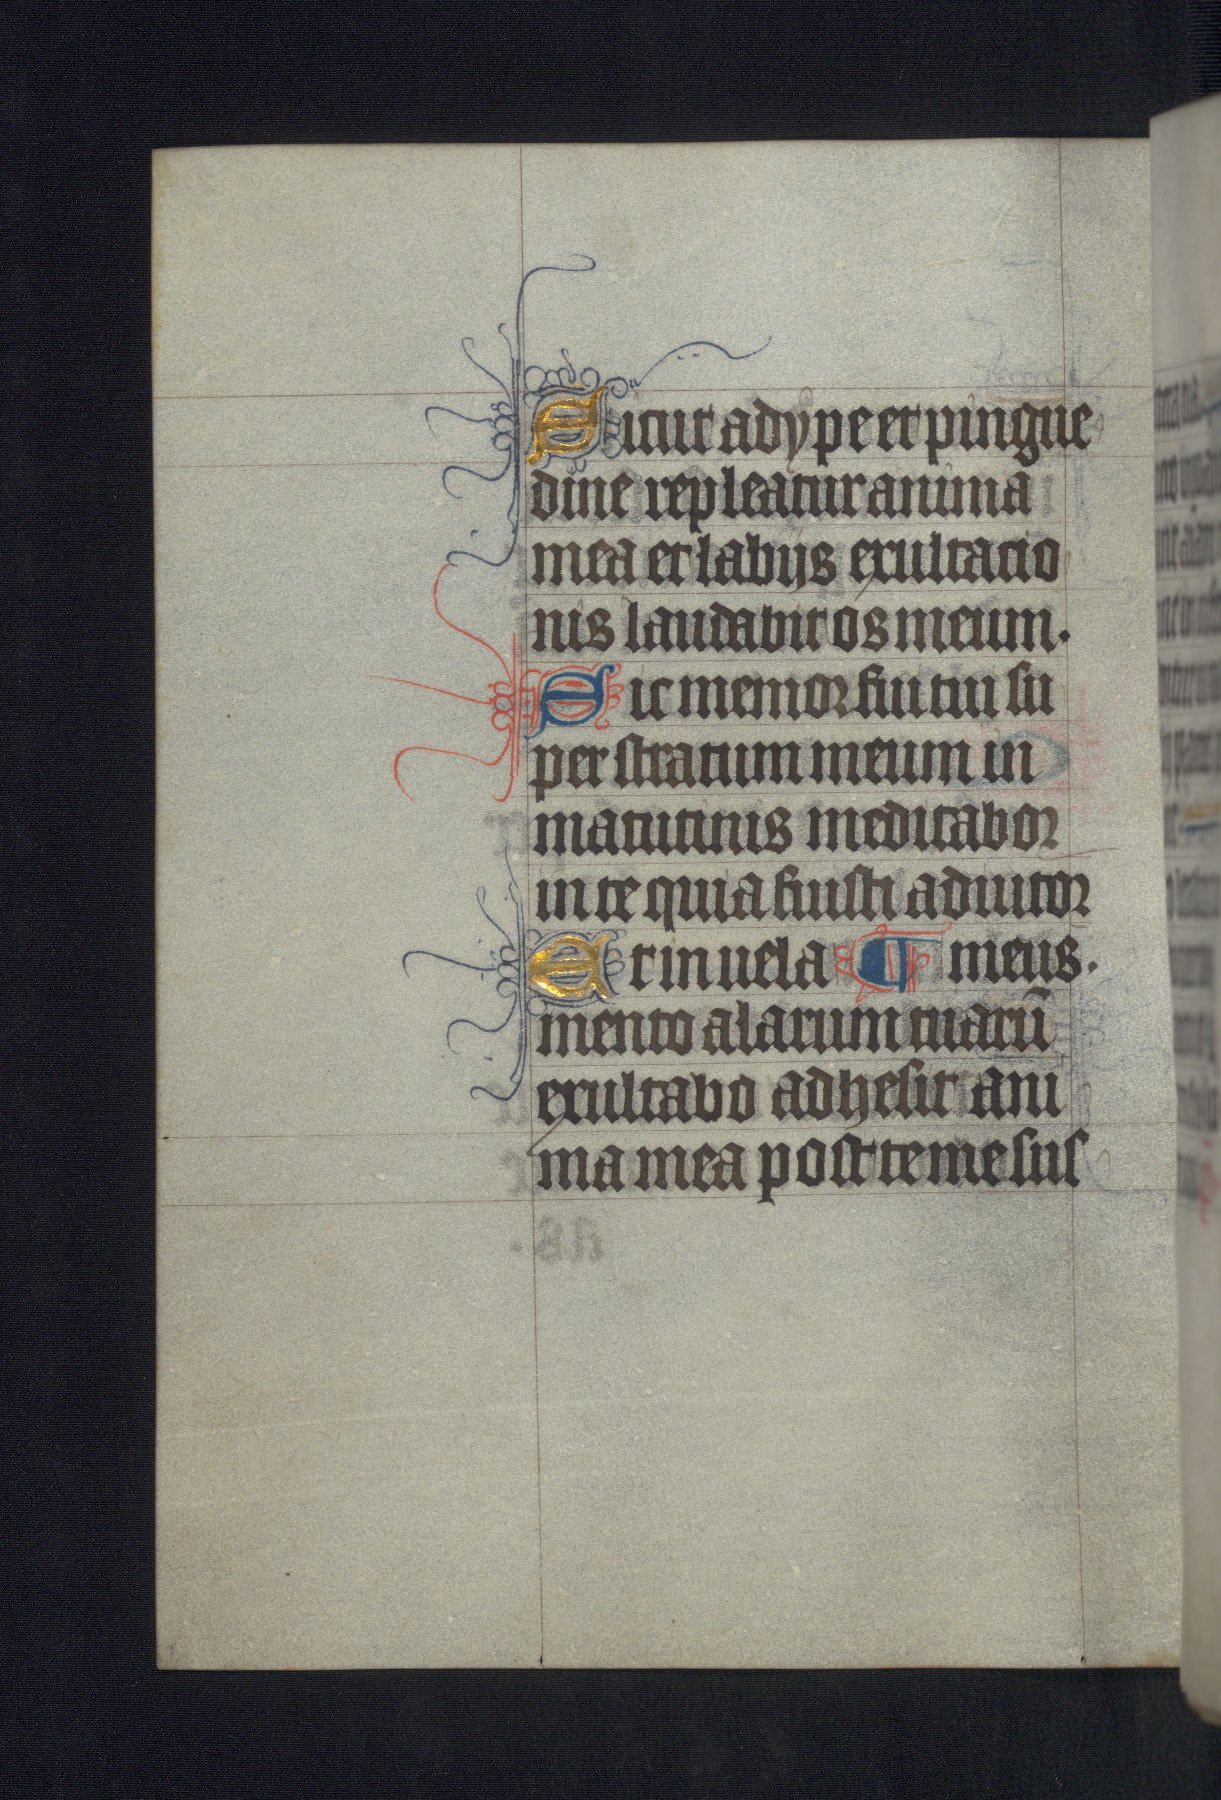 Sicut adype et pingue
dine repleatur anima
mea et labijs exultatio
nis laudabit os meum.
Sic memor fui tui su
per stratum meum in
matutinis meditabor
in te quia fuisti adiutor
Et in uela ¶ meus.
mento alarum tuarū
exultabo adhesit ani
ma mea post te me sus